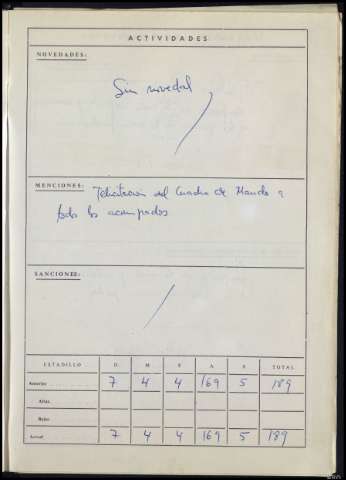 ACTIVIDADES
NOVEDADES:
Sin novedad
MENCIONES: Felicitación del Cuadro de Mando a
todos los acampados
SANCIONES:
ESTADILLO D. M. E. A. S. TOTAL
Anterior 7 4 4 169 5 189
Altas
Bajas
Actual 7 4 4 169 5 189